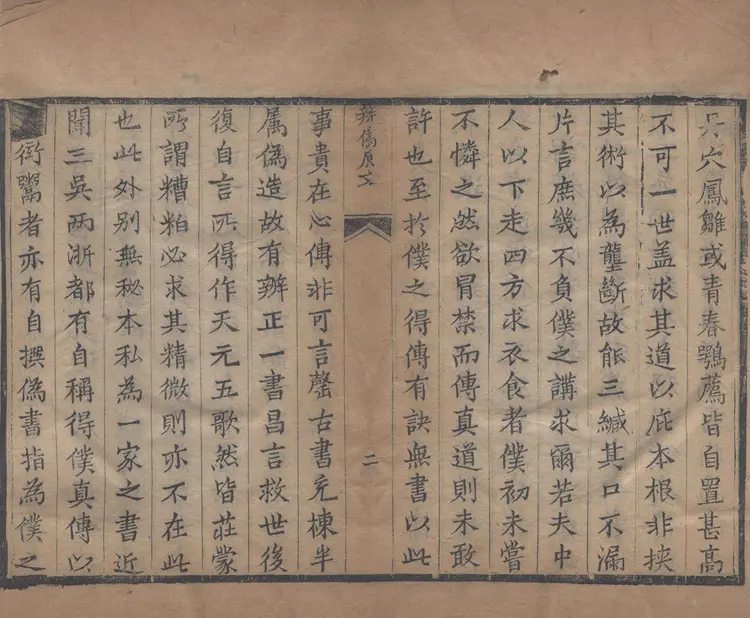 丹穴鳳雛或青春鶚薦皆自置甚高
不可一世盖求其道以庇本根非挾
其術以為壟斷故能三緘其口不漏
片言庶幾不負僕之講求爾若夫中
人以下走四方求衣食者僕初未嘗
不憐之然欲冒禁而傳真道則未敢
許也至扵僕之得傳有訣無書以此
辨偽原文
二
事貴在心傳非可言罄古書充棟半
属偽造故有辨正一書昌言救世後
復自言所得作天元五歌然皆莊蒙
所謂糟粕必求其精微則亦不在此
也此外別無秘本私為一家之書近
聞三吳兩浙都有自稱得僕真傳以
衒鬻者亦有自撰偽書指為僕之